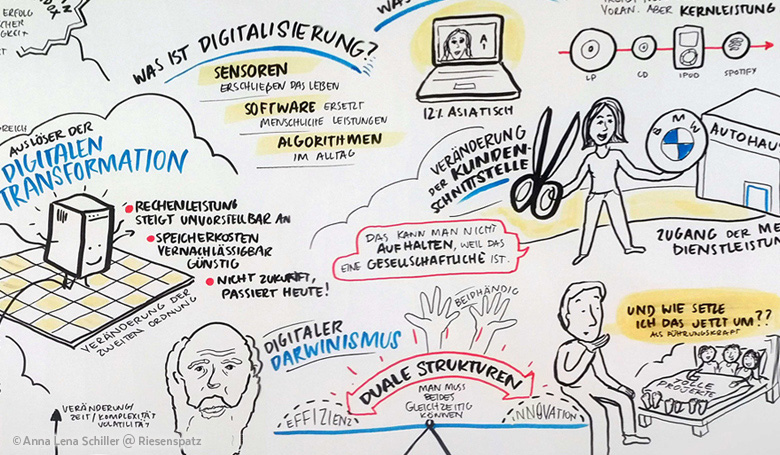 ERFOLG
WAS IST DIGITALISIERUNG?
SENSOREN
ERSCHLIEẞEN DAS LEBEN
SOFTWARE ERSETZT
MENSCHLICHE LEISTUNGEN
ALGORITHMEN
IM ALLTAG
12% ASIATISCH
VORAN. ABER KERNLEISTUNG
LP
CD
IPOD
SPOTIFY
AUSLÖSER DER
DIGITALEN
TRANSFORMATION
RECHENLEISTUNG
STEIGT UNVORSTELLBAR AN
SPEICHERKOSTEN
VERNACHLÄSSIGBAR
GÜNSTIG
NICHT ZUKUNFT,
PASSIERT HEUTE!
VERÄNDERUNG DER
ZWEITEN ORDNUNG
VERÄNDERUNG
DER KUNDEN-
SCHNITTSTELLE
BMW
AUTOHAUS
ZUGANG DER ME
DIENSTLEISTUN
DAS KANN MAN NICHT
AUFHALTEN, WEIL DAS
EINE GESELLSCHAFTLICHE IST.
DIGITALER
DARWINISMUS
BEIDHÄNDIG
DUALE STRUKTUREN
MAN MUSS
BEIDES
GLEICHZEITIG
KÖNNEN
EFFIZIENZ
INNOVATION
UND WIE SETZE
ICH DAS JETZT UM??
ALS FÜHRUNGSKRAFT
TOLLE
PROJEKTE
VERÄNDERUNG/
ZEIT/KOMPLEXITÄT
VOLATILITÄT
©Anna Lena Schiller @ Riesenspatz